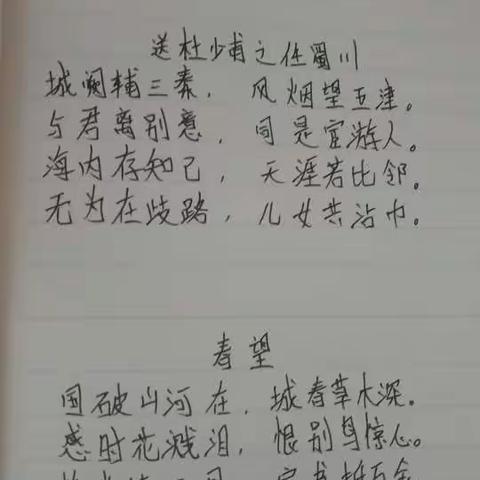 送杜少甫之任蜀川
城阙辅三秦，风烟望五津。
与君离别意，同是宦游人。
海内存知己，天涯若比邻。
无为在歧路，儿女共沾巾。
春望
国破山河在，城春草木深。
感时花溅泪，恨别鸟惊心。